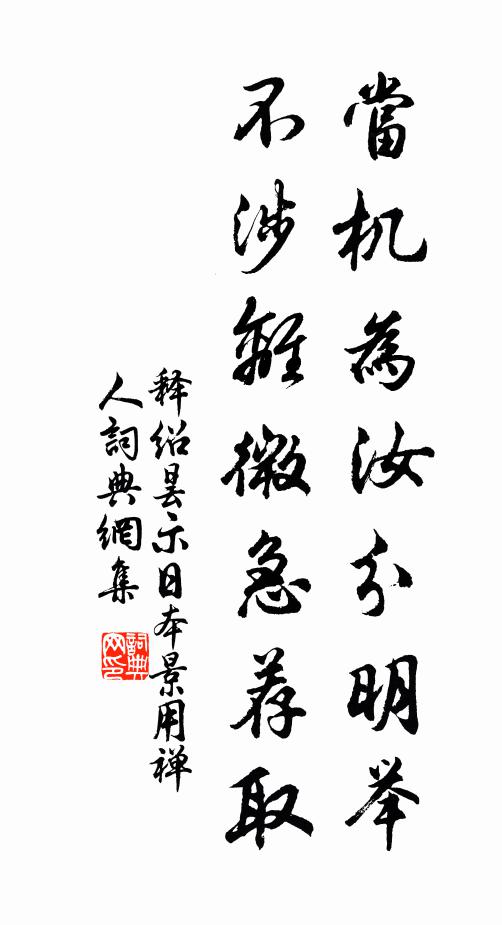 當机為汝分明举
不涉離微急荐取
释绍昙示日本景用禅
人詞典網集
詞典网印